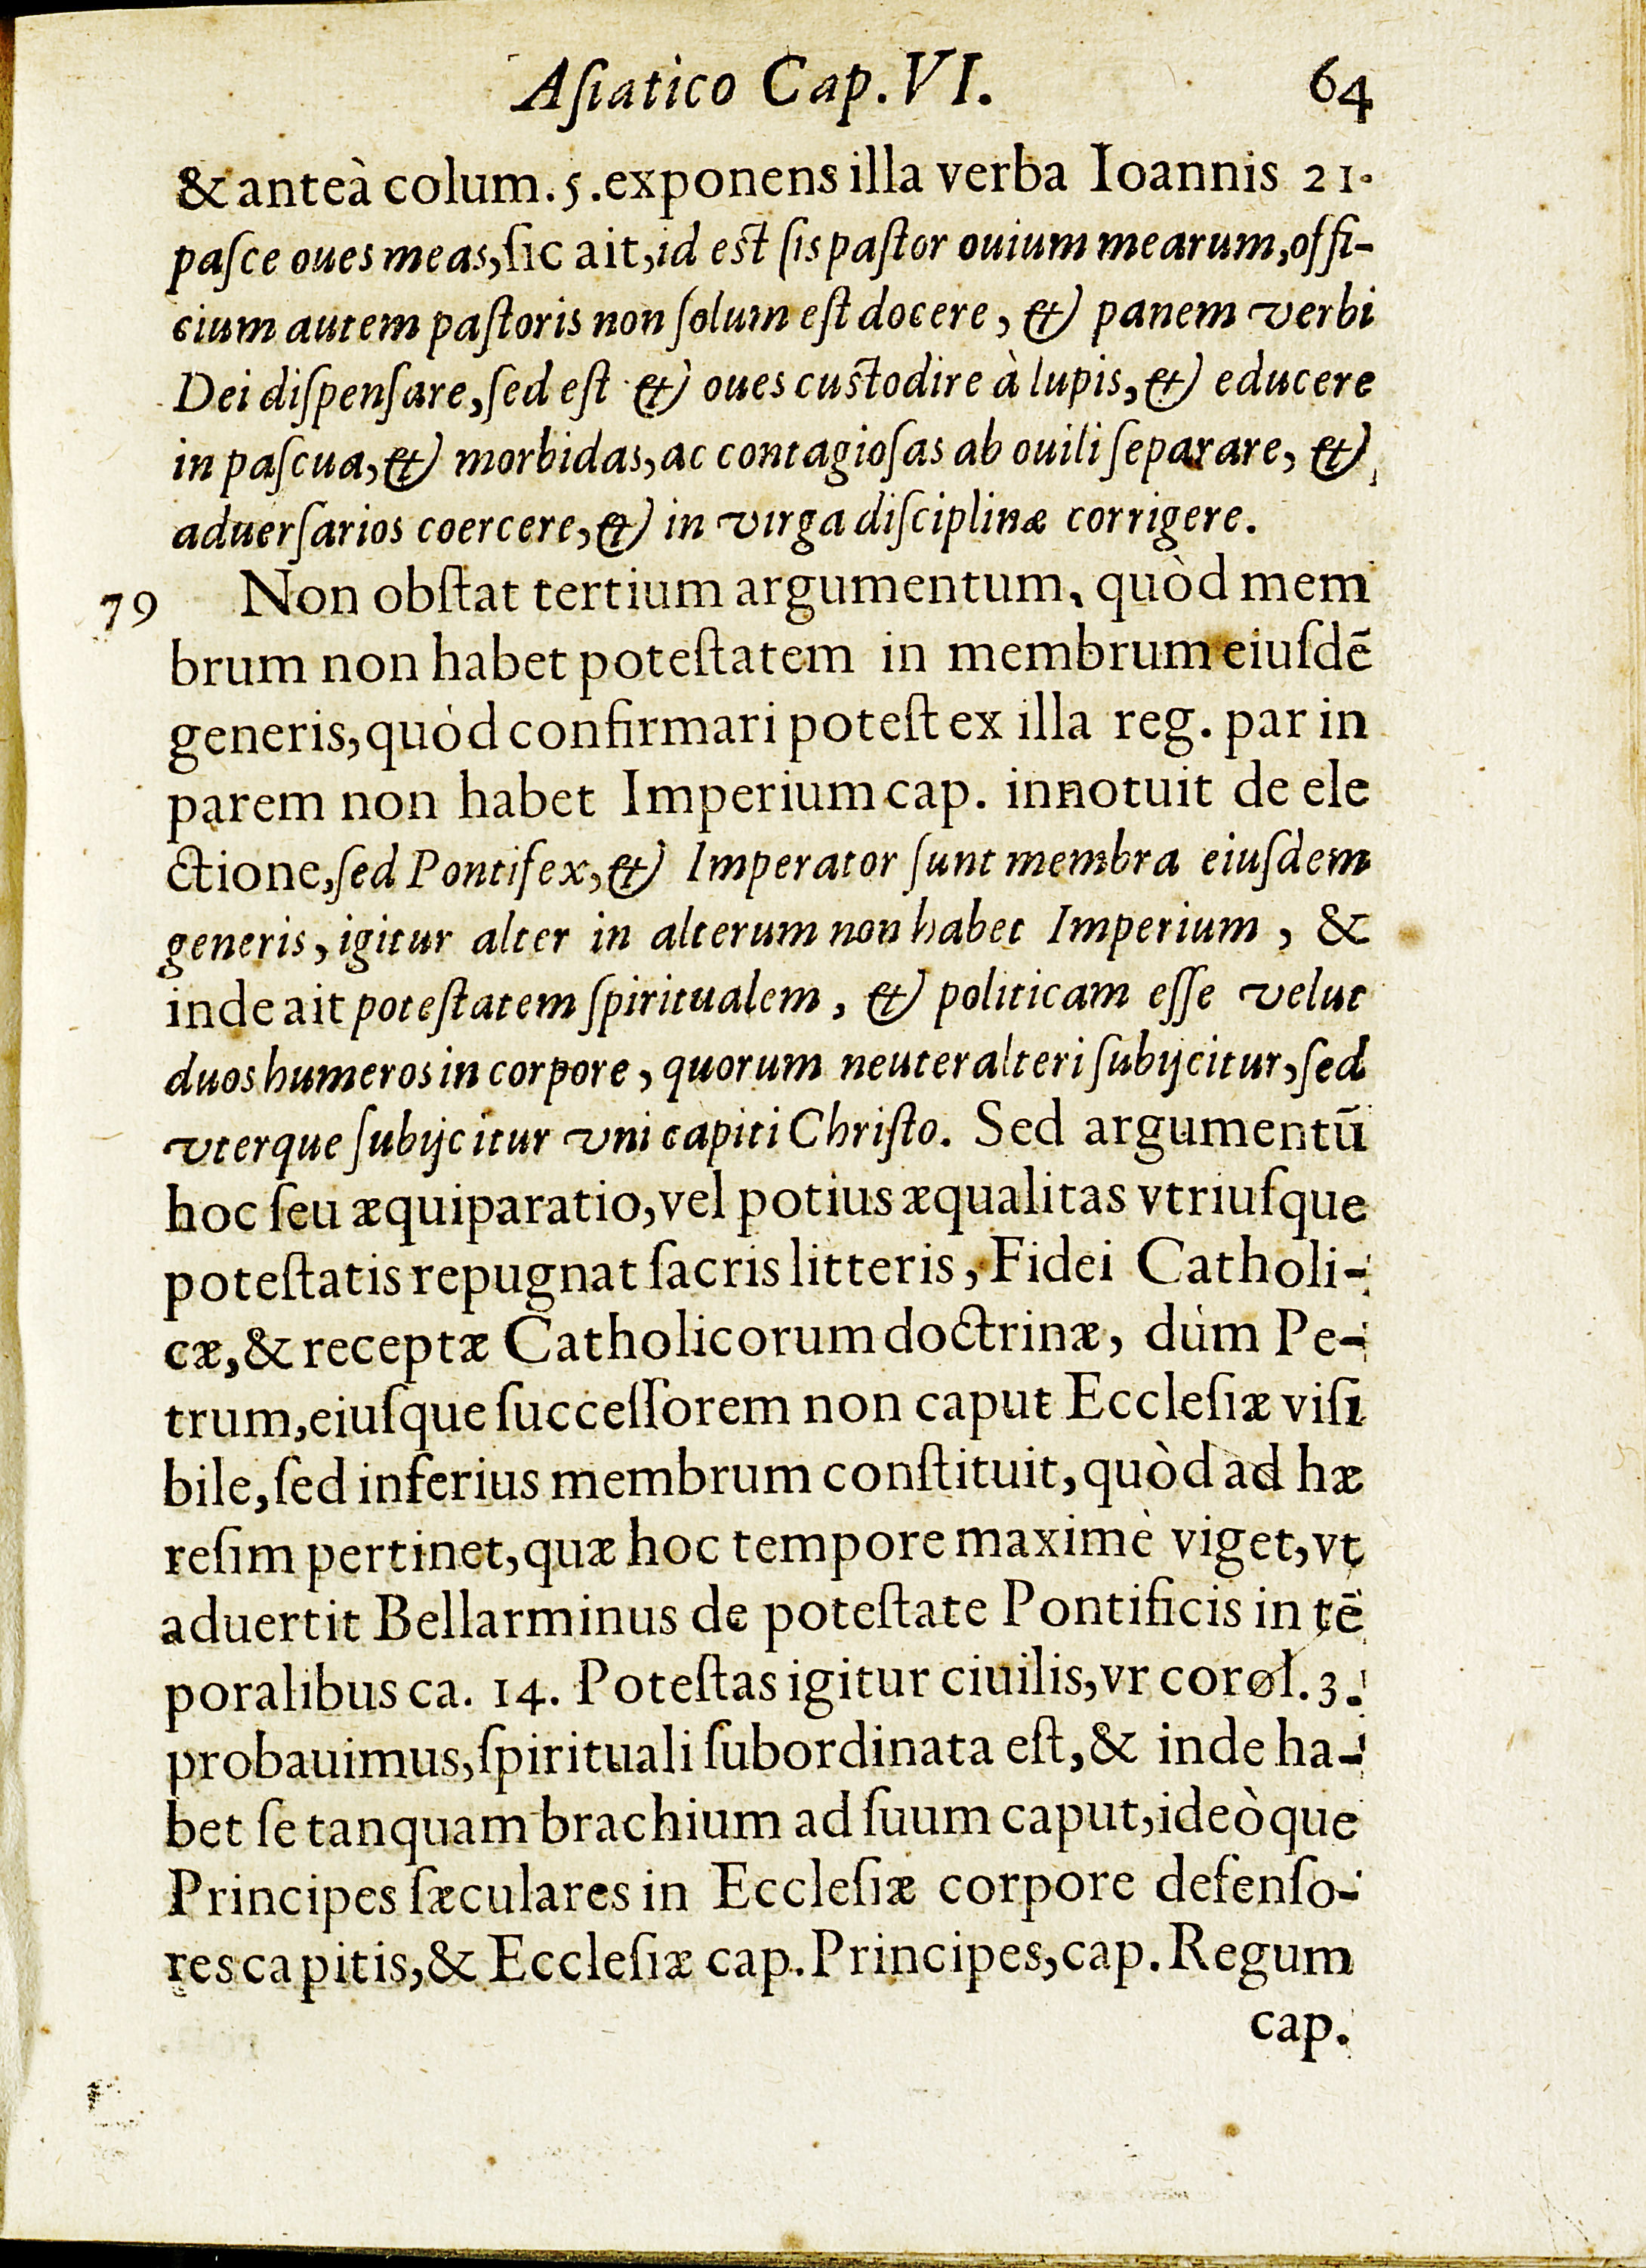 Aſiatico Cap. VI. 64
& anteà colum. 5. exponens illa verba Ioannis 21.
paſce oues meas, ſic ait, id eſt ſis paſtor ouium mearum, offi-
cium autem paſtoris non ſolum eſt docere, & panem verbi
Dei diſpenſare, ſed eſt & oues cuſtodire à lupis, & educere
in paſcua, & morbidas, ac contagioſas ab ouili ſeparare, &
aduerſarios coercere, & in virga diſciplinæ corrigere.
79 Non obſtat tertium argumentum, quòd mem
brum non habet poteſtatem in membrum eiuſdē
generis, quòd confirmari poteſt ex illa reg. par in
parem non habet Imperium cap. innotuit de ele
ctione, ſed Pontifex, & Imperator ſunt membra eiuſdem
generis, igitur alter in alterum non habet Imperium, &
inde ait poteſtatem ſpiritualem, & politicam eſſe velut
duos humeros in corpore, quorum neuter alteri ſubijcitur, ſed
vterque ſubijcitur vni capiti Chriſto. Sed argumentū
hoc ſeu æquiparatio, vel potius æqualitas vtriuſque
poteſtatis repugnat ſacris litteris, Fidei Catholi-
cæ, & receptæ Catholicorum doctrinæ, dùm Pe-
trum, eiuſque ſucceſſorem non caput Eccleſiæ viſi
bile, ſed inferius membrum conſtituit, quòd ad hæ
reſim pertinet, quæ hoc tempore maximè viget, vt
aduertit Bellarminus de poteſtate Pontificis in tē
poralibus ca. 14. Poteſtas igitur ciuilis, vr corol. 3.
probauimus, ſpirituali ſubordinata eſt, & inde ha-
bet ſe tanquam brachium ad ſuum caput, ideòque
Principes ſæculares in Eccleſiæ corpore defenſo-
res capitis, & Eccleſiæ cap. Principes, cap. Regum
cap.